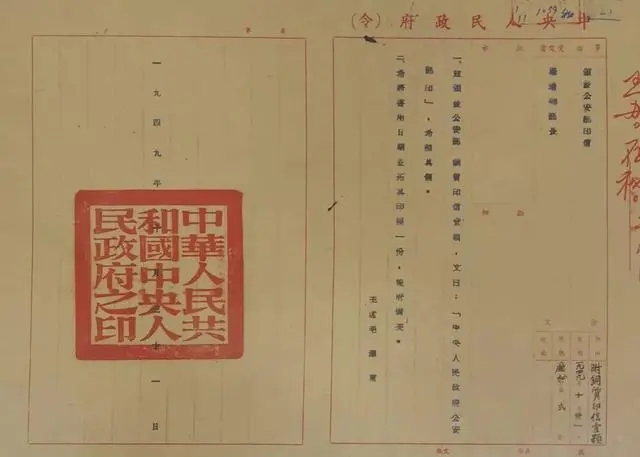 中央人民政府（令）
頒發公安部印信
羅瑞卿部長
附銅質印信壹顆
一、茲頒發公安部銅質印信壹顆，文曰：「中央人民政府公安
部印」，希具領。
二、希將啓用日期並拓具印模一份，報府備查。
主席毛澤東
一九四九年十月三十一日
中華人民共
和國中央人
民政府之印